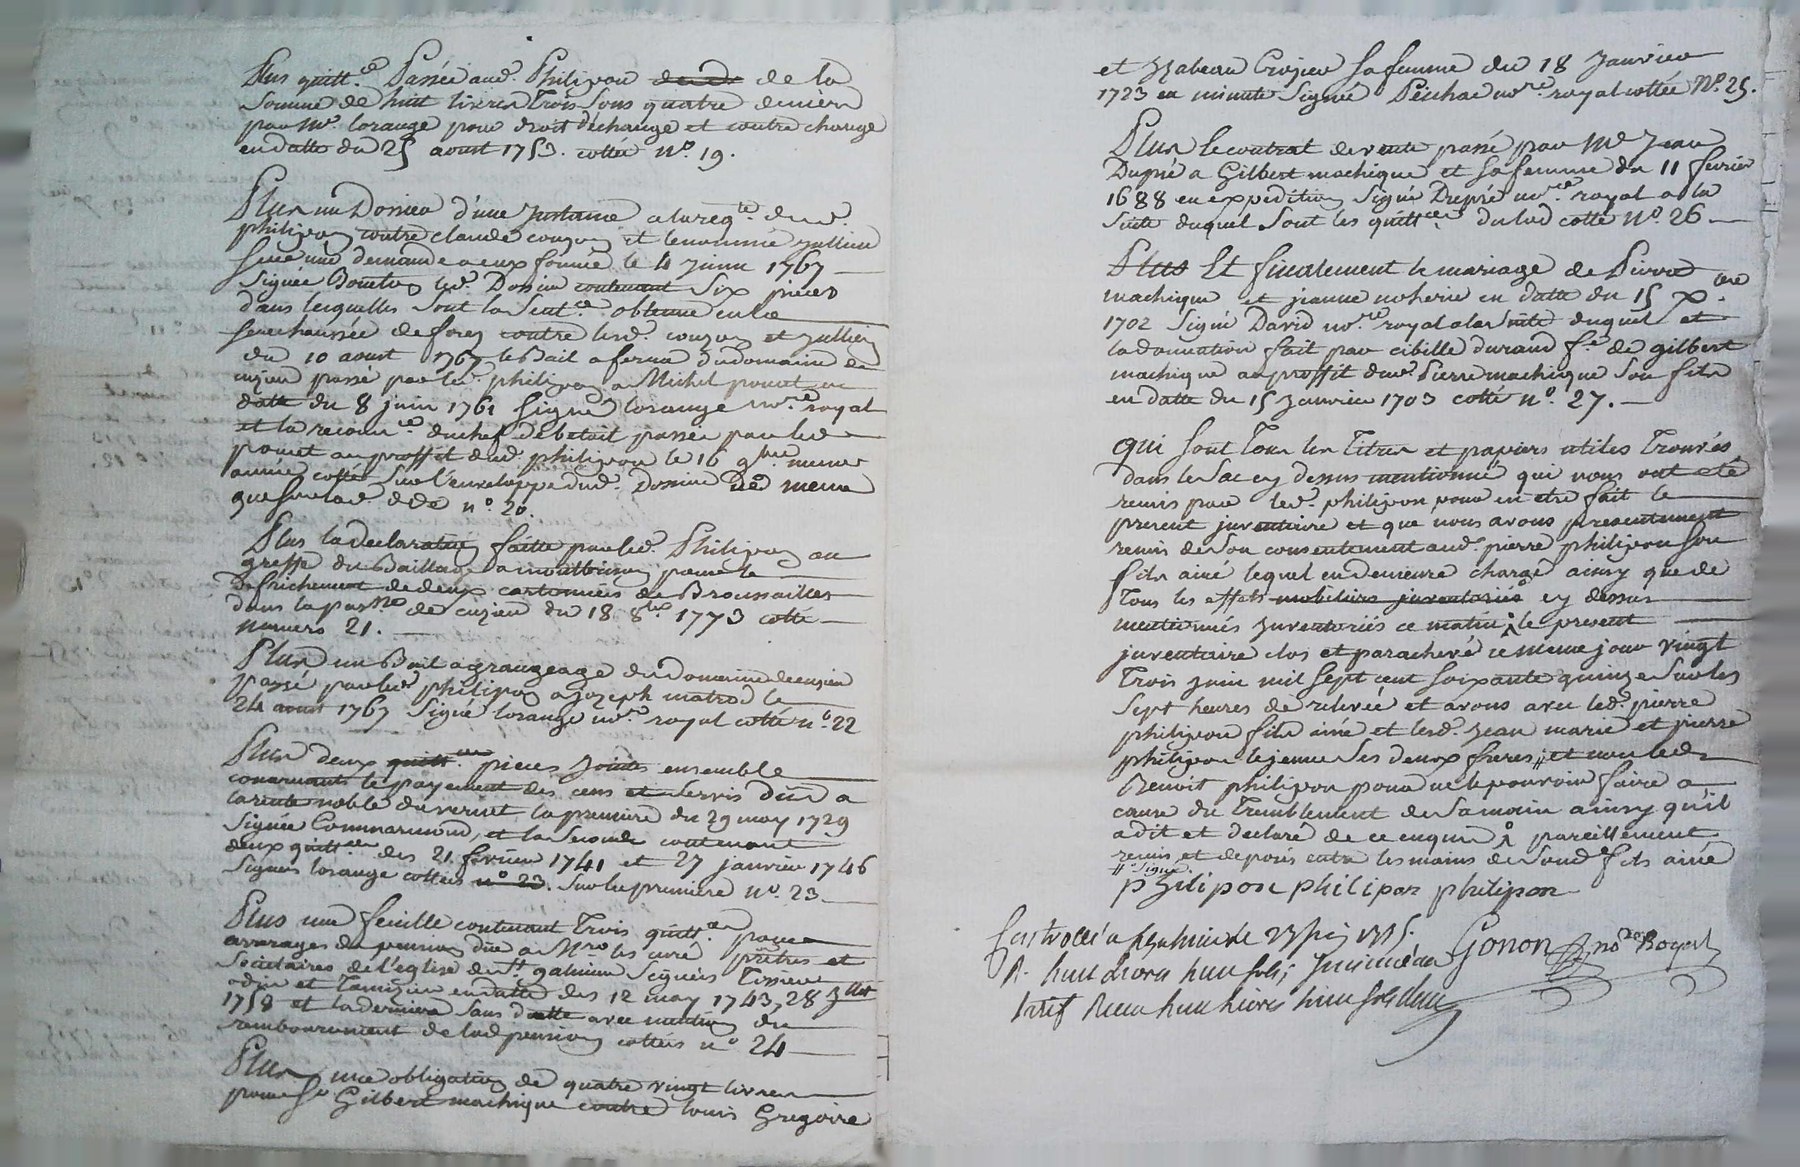 Plus quitt.ce Passée aud. Philipon de la
Somme de huit livres Trois Sous quatre deniers
par Me. lorange pour droit d'échange et contre change
en datte du 25 aoust 1753. cotté n.o 19.
Plus un Dossier d'une Instance a la req.te dud.
philipon contre claude couzon et le nommé Jullien
sur une demande a eux formée le 4 Juin 1767
Signée Bourboy led. Dossier contenant Six pieces
dans lesquelles Sont la Sent.ce obtenue en la
Senechaussée de forez contre lesd. couzon et Jullien
du 10 aoust 1767 le Bail a ferme du domaine de
cuzieu passé par led. philipon a Michel pouret en
datte du 8 juin 1761 Signé lorange no.re royal
et la reconn.ce du chef de betail passée par led
pouret au proffit dud. philipon le 16 9bre meme
année cottés Sur l'enveloppe dud. Dossier De meme
que Sur lad. dde n.o 20.
Plus la declaration faitte par led. Philipon au
greffe du Baillage a montbrison pour le
defrichement de deux cartonnées de Broussailles
dans la par.sse de cuzieu du 18 8bre 1773 cotté
numero 21.
Plus un Bail a grangeage du Domaine de cuzieu
passé par led philipon a jozeph matrod le
24 aoust 1767 Signé lorange no.re royal cotté n.o 22
Plus deux quitt.ces pieces Jointes ensemble
concernant le payement des cens et Servis Dûs a
la rente noble du vernet la premiere du 29 may 1729
Signée Commarmond, et la Seconde contenant
deux quitt.ces des 21 fevrier 1741 et 27 janvier 1746
Signées lorange cottées n.o 23. Sur la premiere n.o 23
Plus une feuille contenant Trois quitt.ces pour
arrerages de pension due a Mrs les curé prêtres et
Societaires de l'eglise de St galmier Signées Tissier
odin et Tamizier en datte des 12 may 1743, 28 Jllet
1758 et la derniere Sans datte avec mention du
remboursement de lad pension cottées n.o 24
Plus une obligation de quatre vingt livres
pour Sr Gilbert machique contre louis Gregoire
et Izabeau Crozier Sa femme du 18 Janvier
1723 en minute Signée Péuchac no.re royal cottée N.o 25.
Plus le contrat de vente passé par Me Jean
Dupré a Gilbert machique et Sa femme du 11 fevrier
1688 en expedition Signé Dupré no.re royal a la
Suite duquel Sont les quitt.ces du lod cotté N.o 26
Plus Et finalement le mariage de Pierre
machique et jeanne noherie en datte du 15 Xbre
1702 Signé David no.re royal a la Suite duquel est
la donnation fait par cibille durand fe de gilbert
machique au proffit dud. Pierre machique Son fils
en datte du 15 Janvier 1703 cotté n.o 27.
qui Sont Tous les Titres et papiers utiles Trouvés
dans le Sac cy dessus mentionné qui nous ont eté
remis par led. philipon pour en etre fait le
present inventaire et que nous avons presentement
remis de Son consentement aud. pierre philipon Son
fils ainé lequel en demeure chargé ainsy que de
Tous les effets mobiliers inventoriés cy dessus
mentionnés Inventoriés ce matin; le present
inventaire clos et parachevé ce meme jour vingt
Trois juin mil Sept cent Soixante quinze Sur les
Sept heures de relevée et avons avec led. pierre
philipon fils ainé et lesd. Jean marie et pierre
philipon le jeune Ses deux freres // et non led
Benoit philipon pour ne le pouvoir faire a
cause du Tremblement de Sa main ainsy qu'il
a dit et declaré de ce enquis pareillement
remis et deposés entre les mains de Sond fils ainé
// Signé
philipon philipon philipon
Controllé a St galmier le 23 juin 1775.
R. huit livres huit sols; Insinué au
tarif Recu huit livres huit sols
Gonon no.re Royal